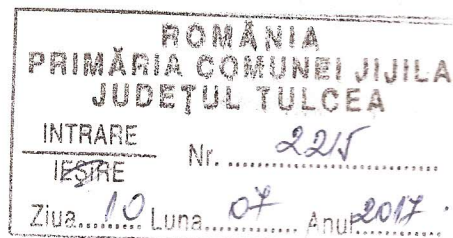 ROMÂNIA
PRIMĂRIA COMUNEI JIJILA
JUDEȚUL TULCEA
INTRARE
IEȘIRE
Nr. 2215
Ziua 10 Luna 07 Anul 2017